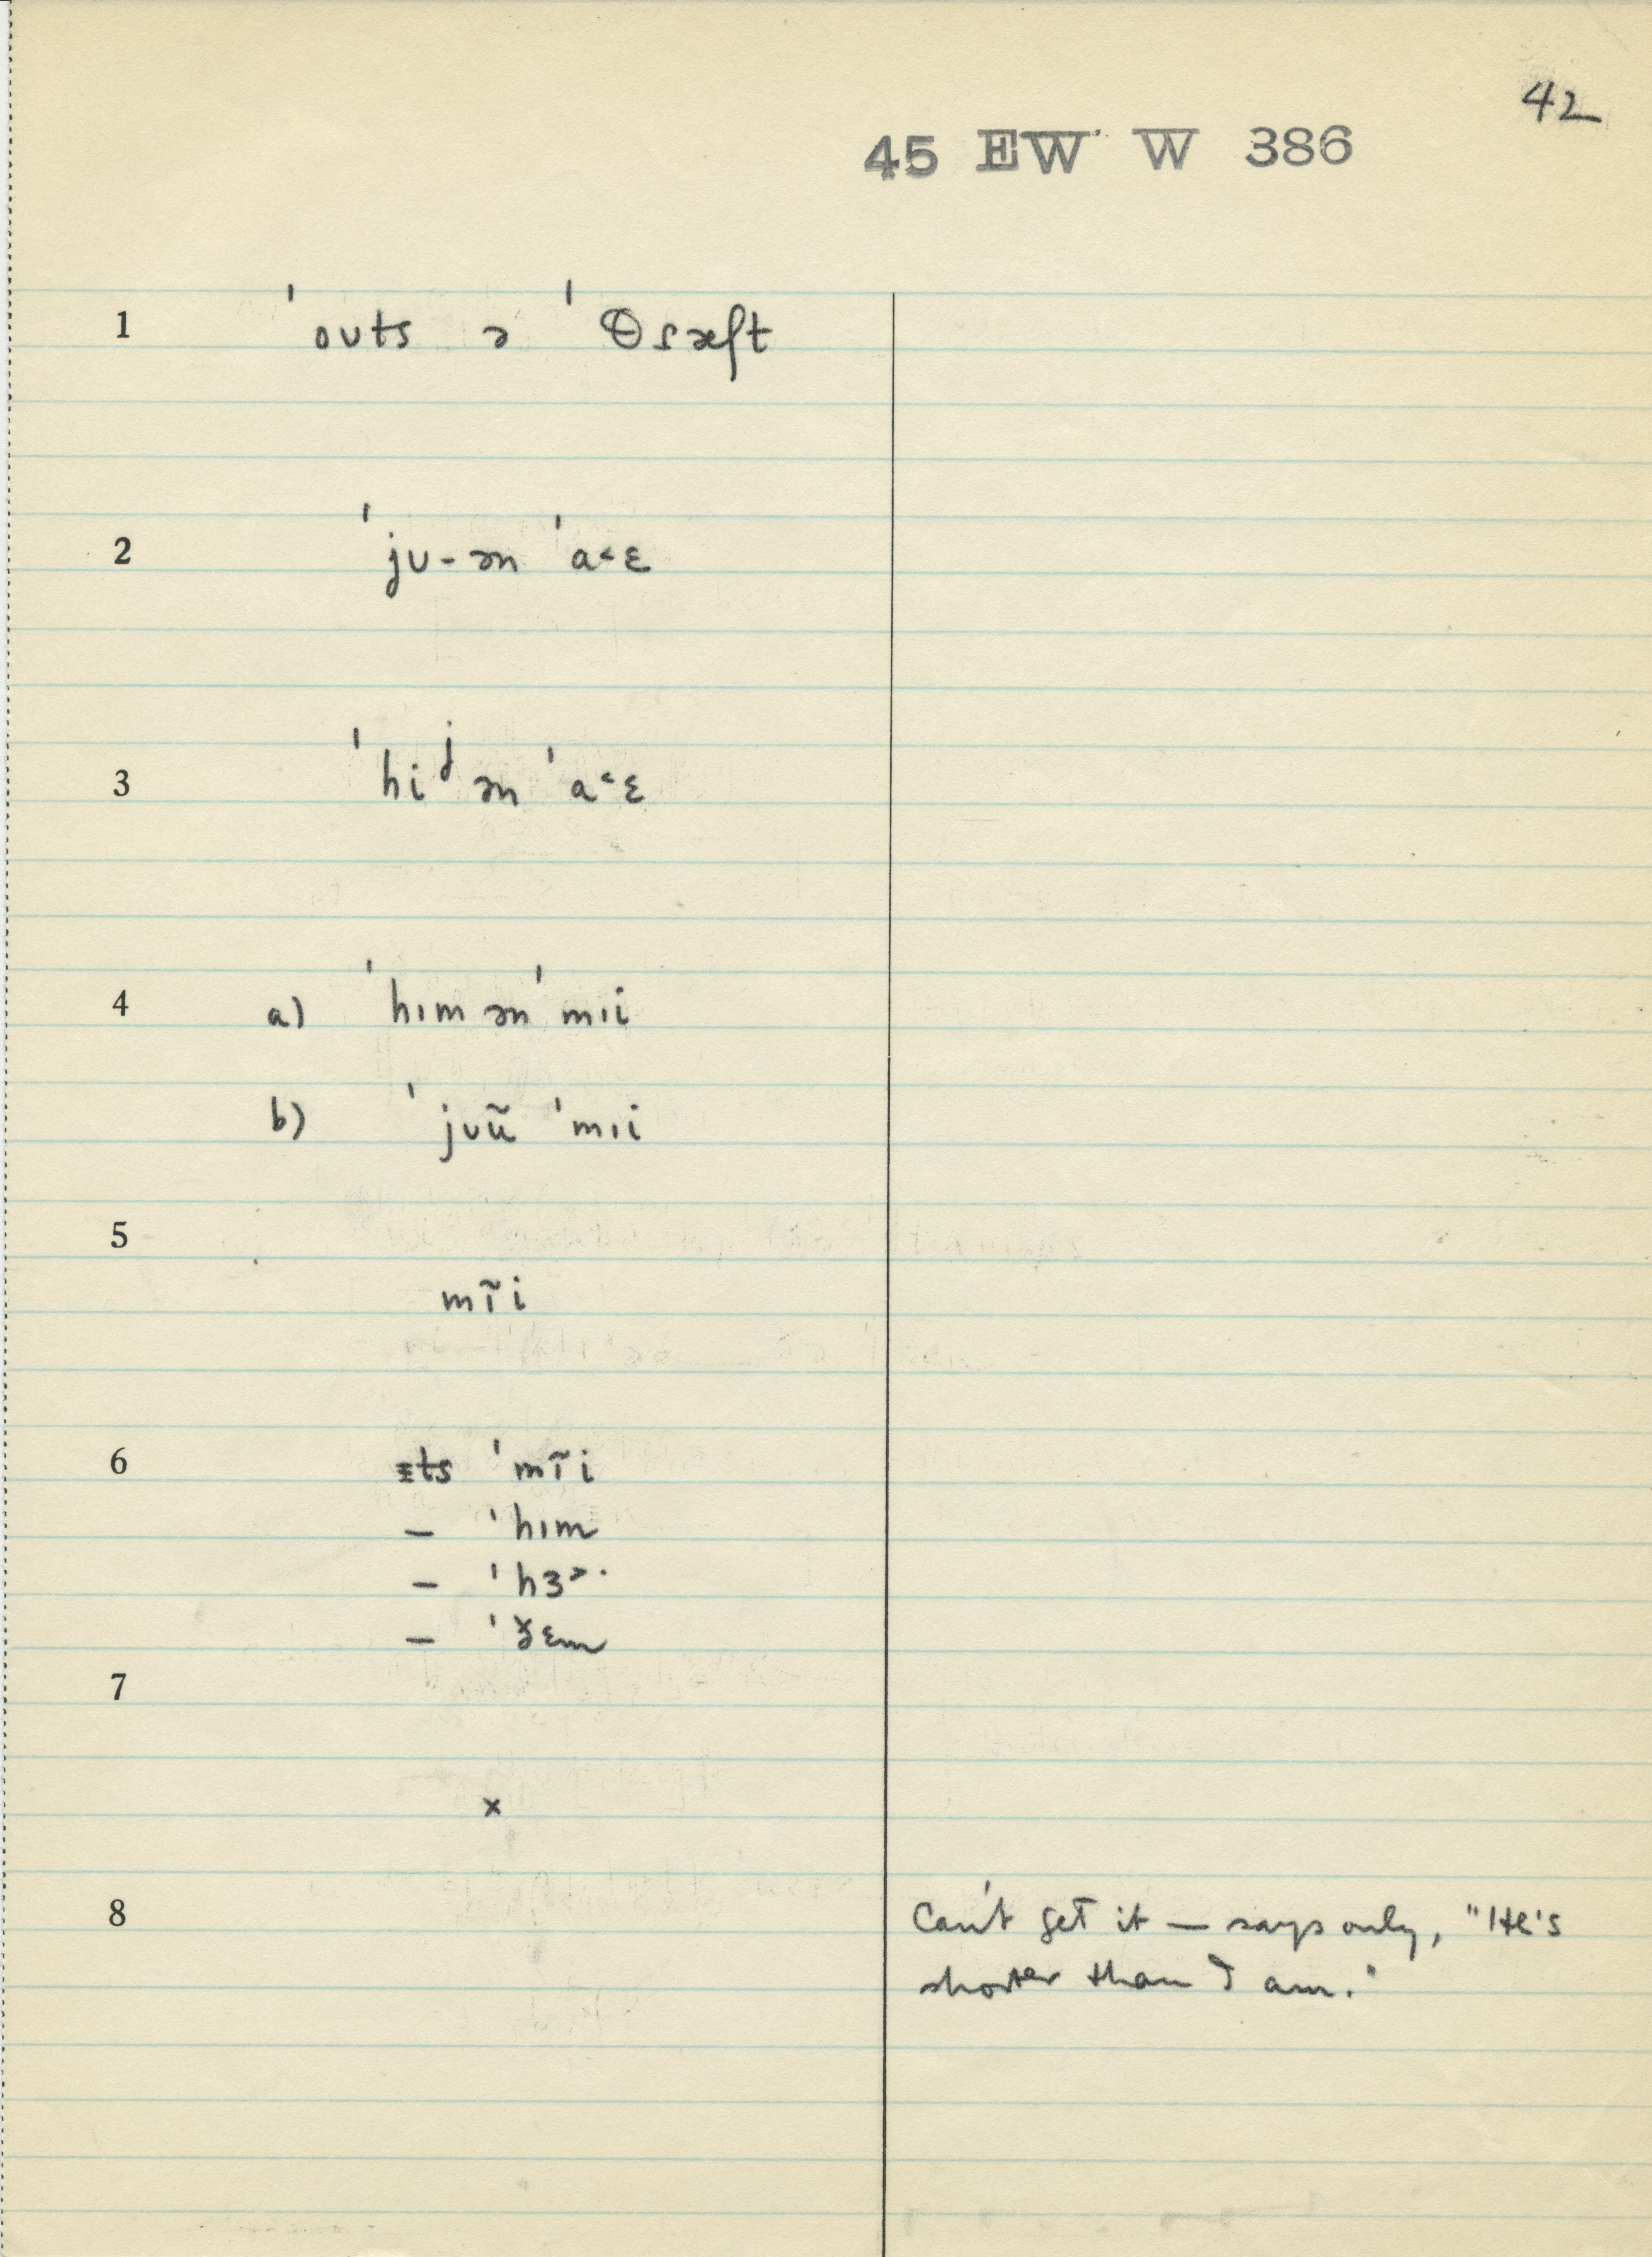 42
45 EW W 386
1 ˈoʊts ə ˈθɾæʃt
2 ˈjʊ-ən ˈa˂ɛ
3 ˈhiʲ ən ˈa˂ɛ
4 a) ˈhɪm ən ˈmɪi
b) ˈjʊũ ˈmɪi
5
mɪ̃i
6 ɪts ˈmɪ̃i
– ˈhɪm
– ˈhɜ˃·
– ˈðɛm
7
x
8 Can't get it — says only, "He's
shorter than I am."